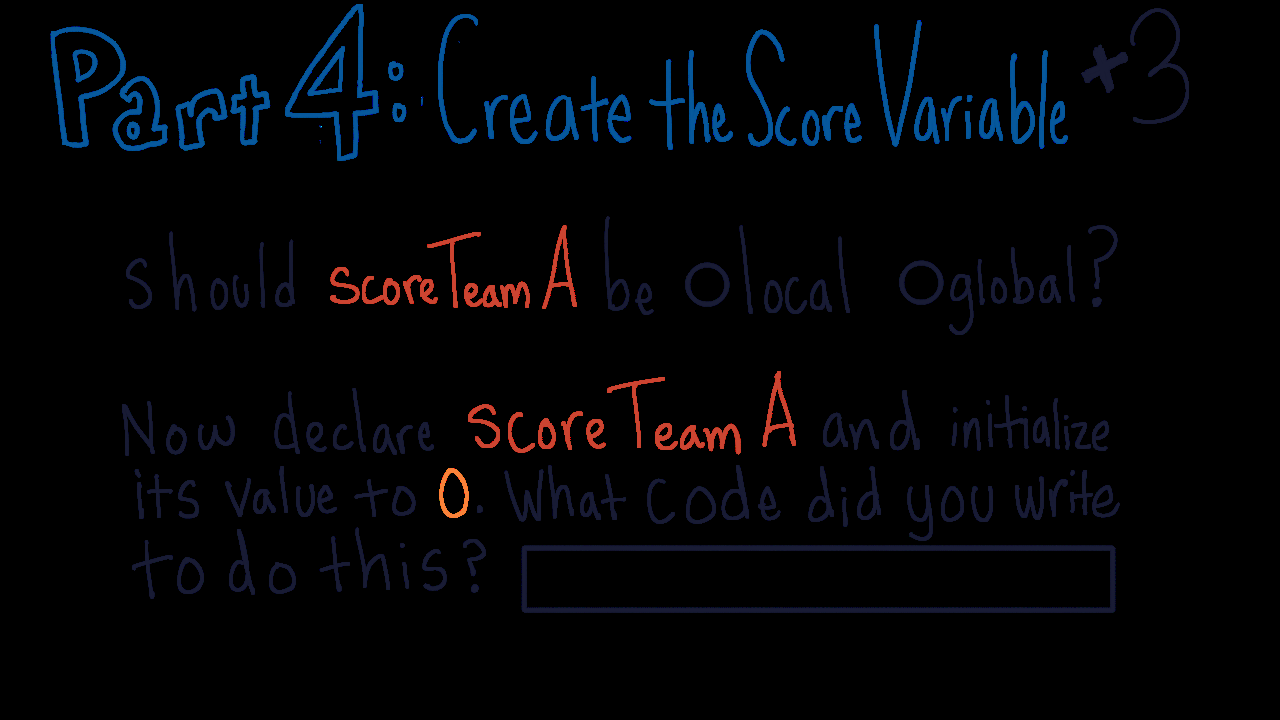 Part 4: Create the Score Variable +3
should scoreTeamA be O local O global?
Now declare scoreTeamA and initialize
its value to 0. What code did you write
to do this?